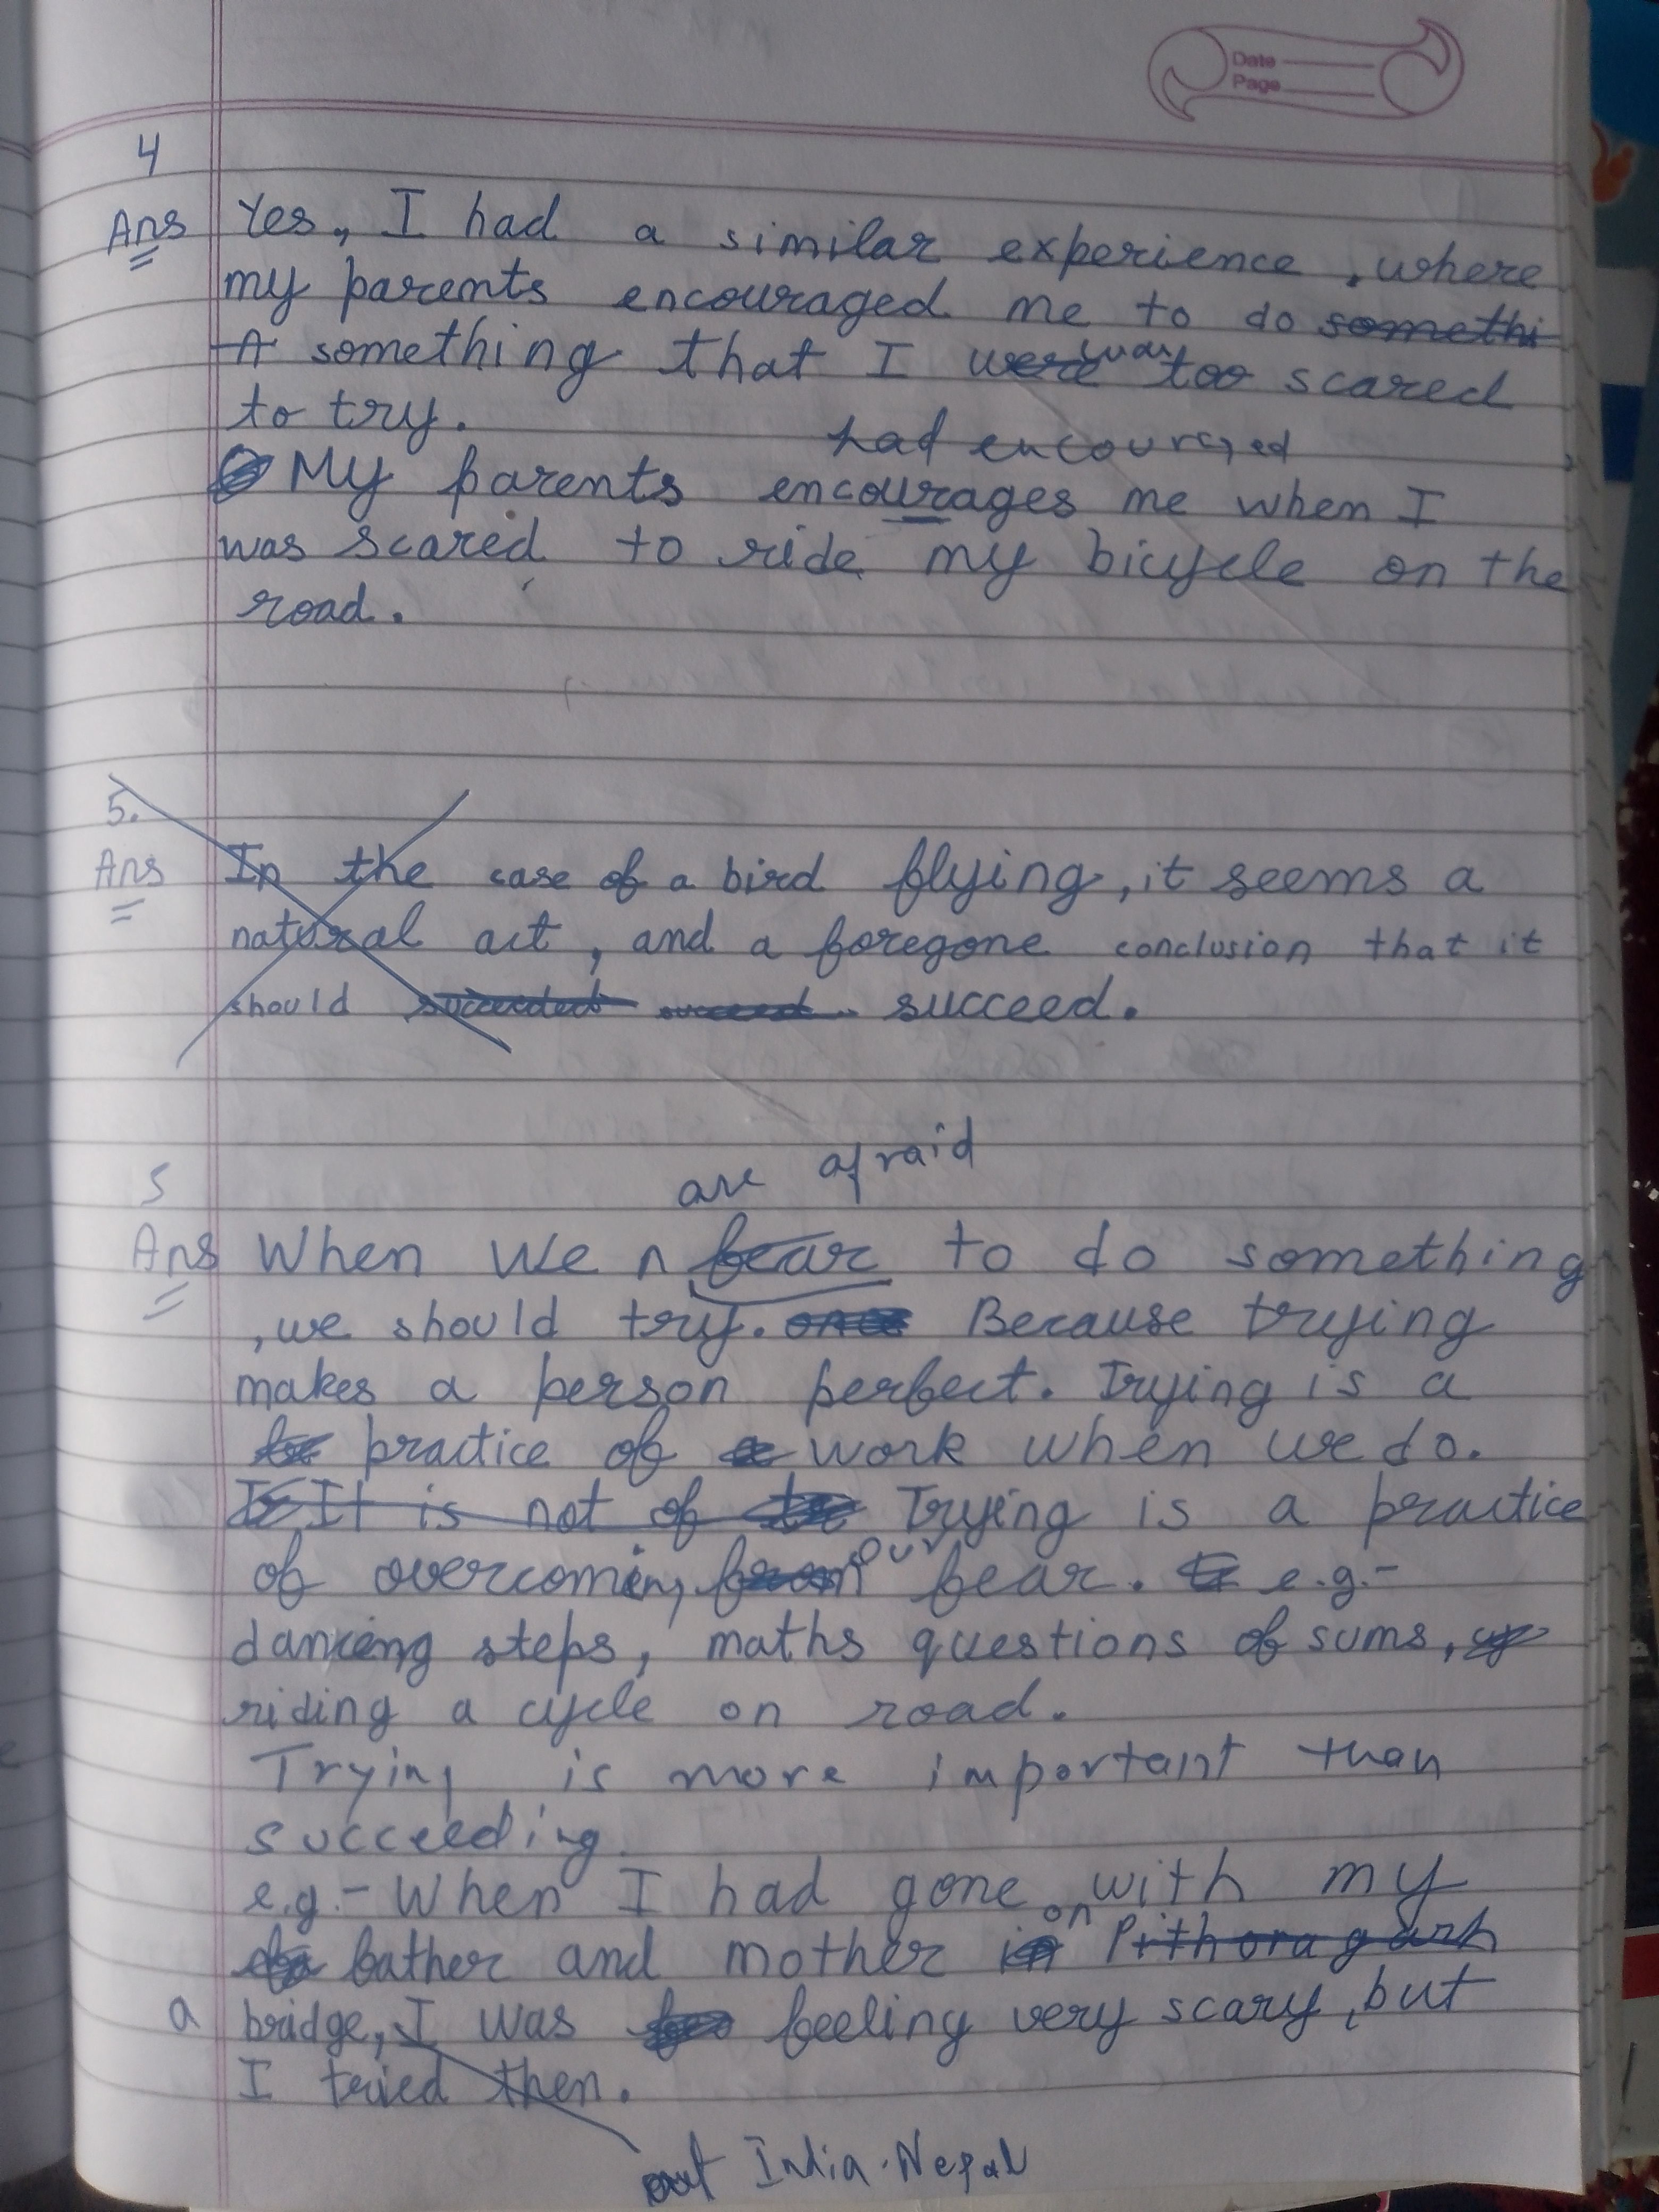 Date
Page
4
Ans Yes, I had a similar experience, where
my parents encouraged me to do somethi
A something that I were was too scared
to try.
had encouraged
My parents encourages me when I
was scared to ride my bicycle on the
road.
5.
Ans In the case of a bird flying, it seems a
natural act, and a foregone conclusion that it
should succeeded succeed.
are afraid
5
Ans When we fear to do something
, we should try. Because trying
makes a person perfect. Trying is a
practice of work when we do.
It is not of Trying is a practice
of overcoming our fear. e.g.-
dancing steps, maths questions of sums,
riding a cycle on road.
Trying is more important than
succeeding
e.g.- When I had gone with my
on
father and mother in Pithoragarh
a bridge, I was feeling very scary, but
I tried then.
at India-Nepal